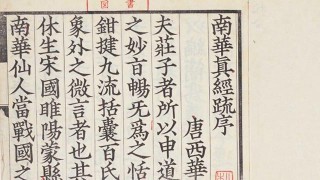 南華眞經疏序
唐西華
夫莊子者所以申道
之妙音暢无爲之恬
鉗揵九流括囊百氏
象外之微言者也其
休生宋國睢陽蒙縣
南華仙人當戰國之